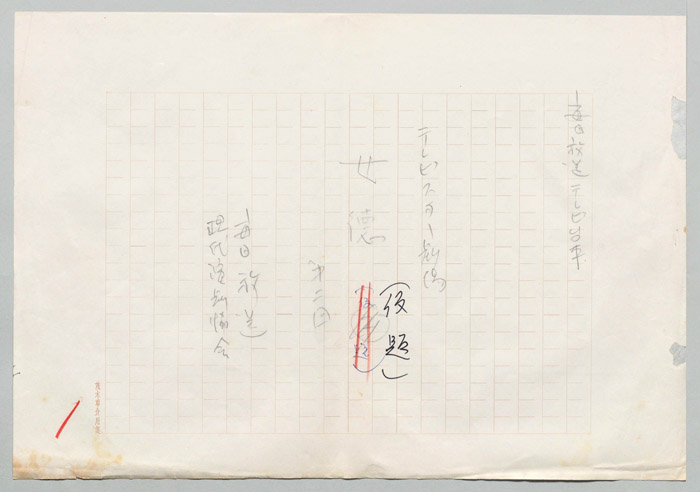 毎日放送テレビ台本
テレビスター劇場
女徳
（仮題）
第二回
毎日放送
現代演劇協会